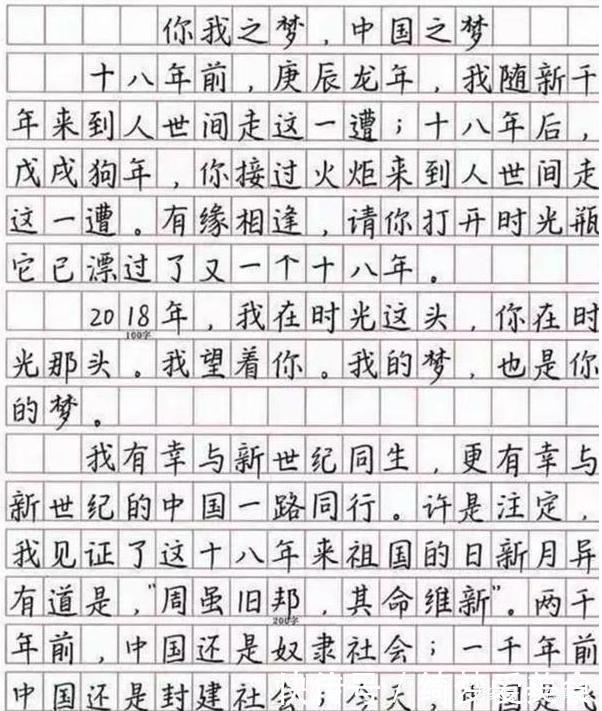 你我之梦，中国之梦
十八年前，庚辰龙年，我随新千
年来到人世间走这一遭；十八年后，
戊戌狗年，你接过火炬来到人世间走
这一遭。有缘相逢，请你打开时光瓶
它已漂过了又一个十八年。
2018年，我在时光这头，你在时
100字
光那头。我望着你。我的梦，也是你
的梦。
我有幸与新世纪同生，更有幸与
新世纪的中国一路同行。许是注定，
我见证了这十八年来祖国的日新月异
有道是，“周虽旧邦，其命维新”。两千
200字
年前，中国还是奴隶社会；一千年前
中国还是封建社会；今天，中国是